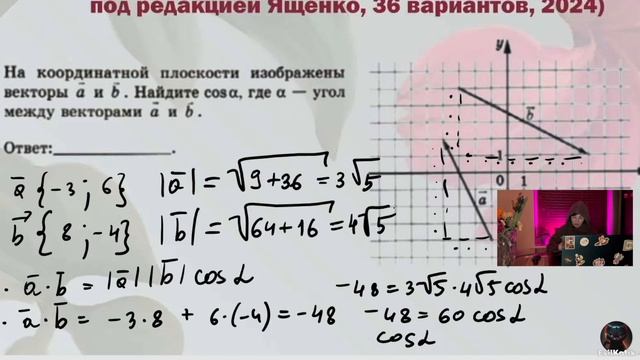 под редакцией Ященко, 36 вариантов, 2024)
На координатной плоскости изображены
векторы a⃗ и b⃗. Найдите cosα, где α — угол
между векторами a⃗ и b⃗.
Ответ:____________.
y
b⃗
1
0 1
a⃗
a̅ {-3 ; 6} |a̅| = √9+36 = 3√5
b⃗ {8 ; -4} |b̅| = √64+16 = 4√5
· a̅ · b̅ = |a̅| |b̅| cos α
· a̅ · b̅ = -3·8 + 6·(-4) = -48
-48 = 3√5 · 4√5 cos α
-48 = 60 cos α
cos α